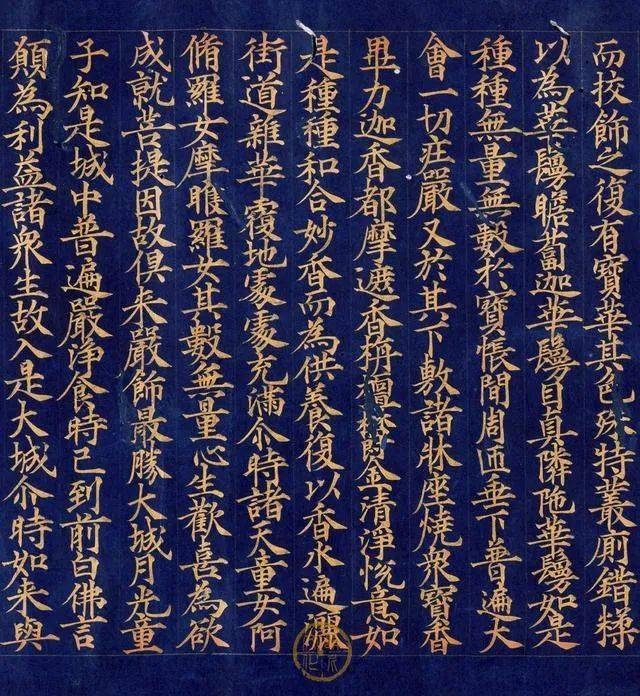 而挍飾之復有寶華其色殊特叢廁錯糅
以為華鬘瞻蔔迦華鬘目真隣陁華鬘如是
種種無量無數於寶帳間周迊垂下普遍大
會一切莊嚴又於其下敷諸牀座燒衆寶香
畢力迦香都摩遮香栴檀欝金清淨悅意如
是種種和合妙香而為供養復以香水遍灑
街道雜華覆地處處充滿尒時諸天童女阿
脩羅女摩睺羅女其數無量心生歡喜為欲
成就菩提因故俱来嚴飾最勝大城月光童
子知是城中普遍嚴淨食時已到前白佛言
願為利益諸衆生故入是大城尒時如来與